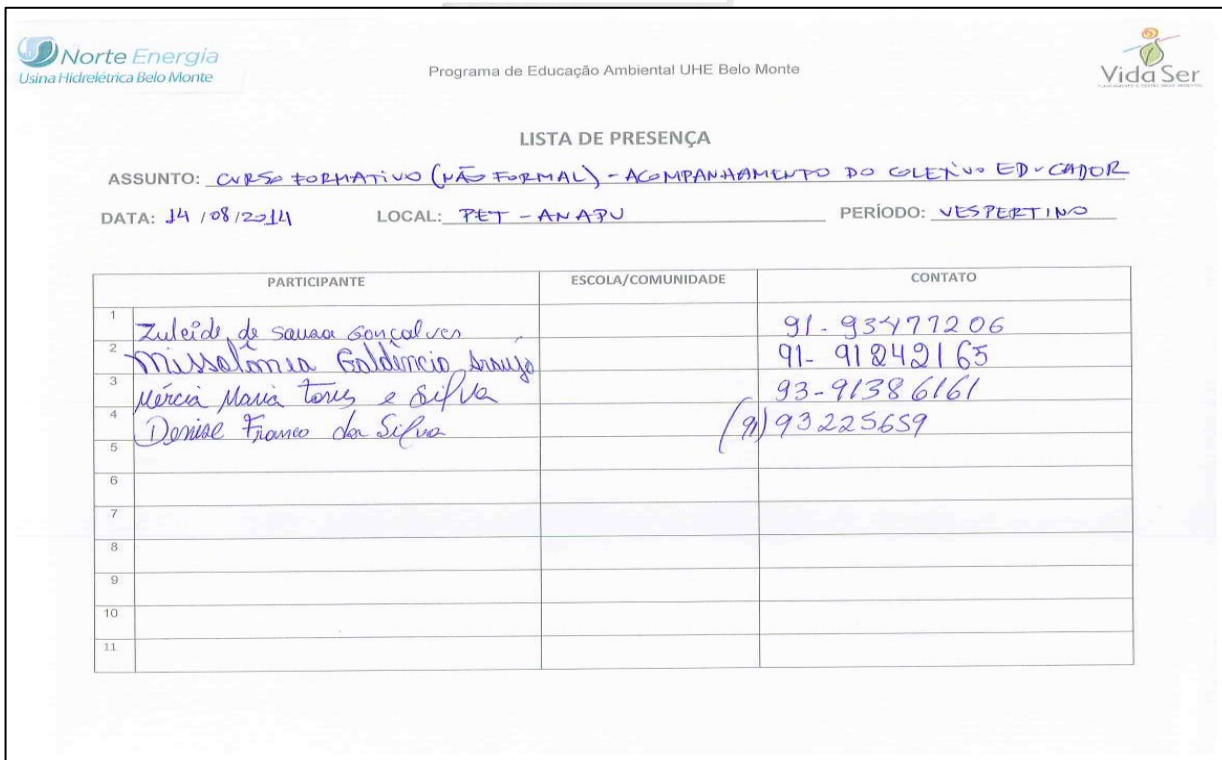 Norte Energia
Usina Hidrelétrica Belo Monte
Programa de Educação Ambiental UHE Belo Monte
Vida Ser
LISTA DE PRESENÇA
ASSUNTO: CURSO FORMATIVO (NÃO FORMAL) - ACOMPANHAMENTO DO COLETIVO EDUCADOR
DATA: 14/08/2014 LOCAL: PET - ANAPU PERÍODO: VESPERTINO
PARTICIPANTE ESCOLA/COMUNIDADE CONTATO
1 Zuleide de Sousa Gonçalves 91-93477206
2 Missolônia Goldencio Araujo 91-91842165
3 Mércia Maria Torres e Silva 93-91386161
4 Denise Franco da Silva (91) 93225659
5
6
7
8
9
10
11